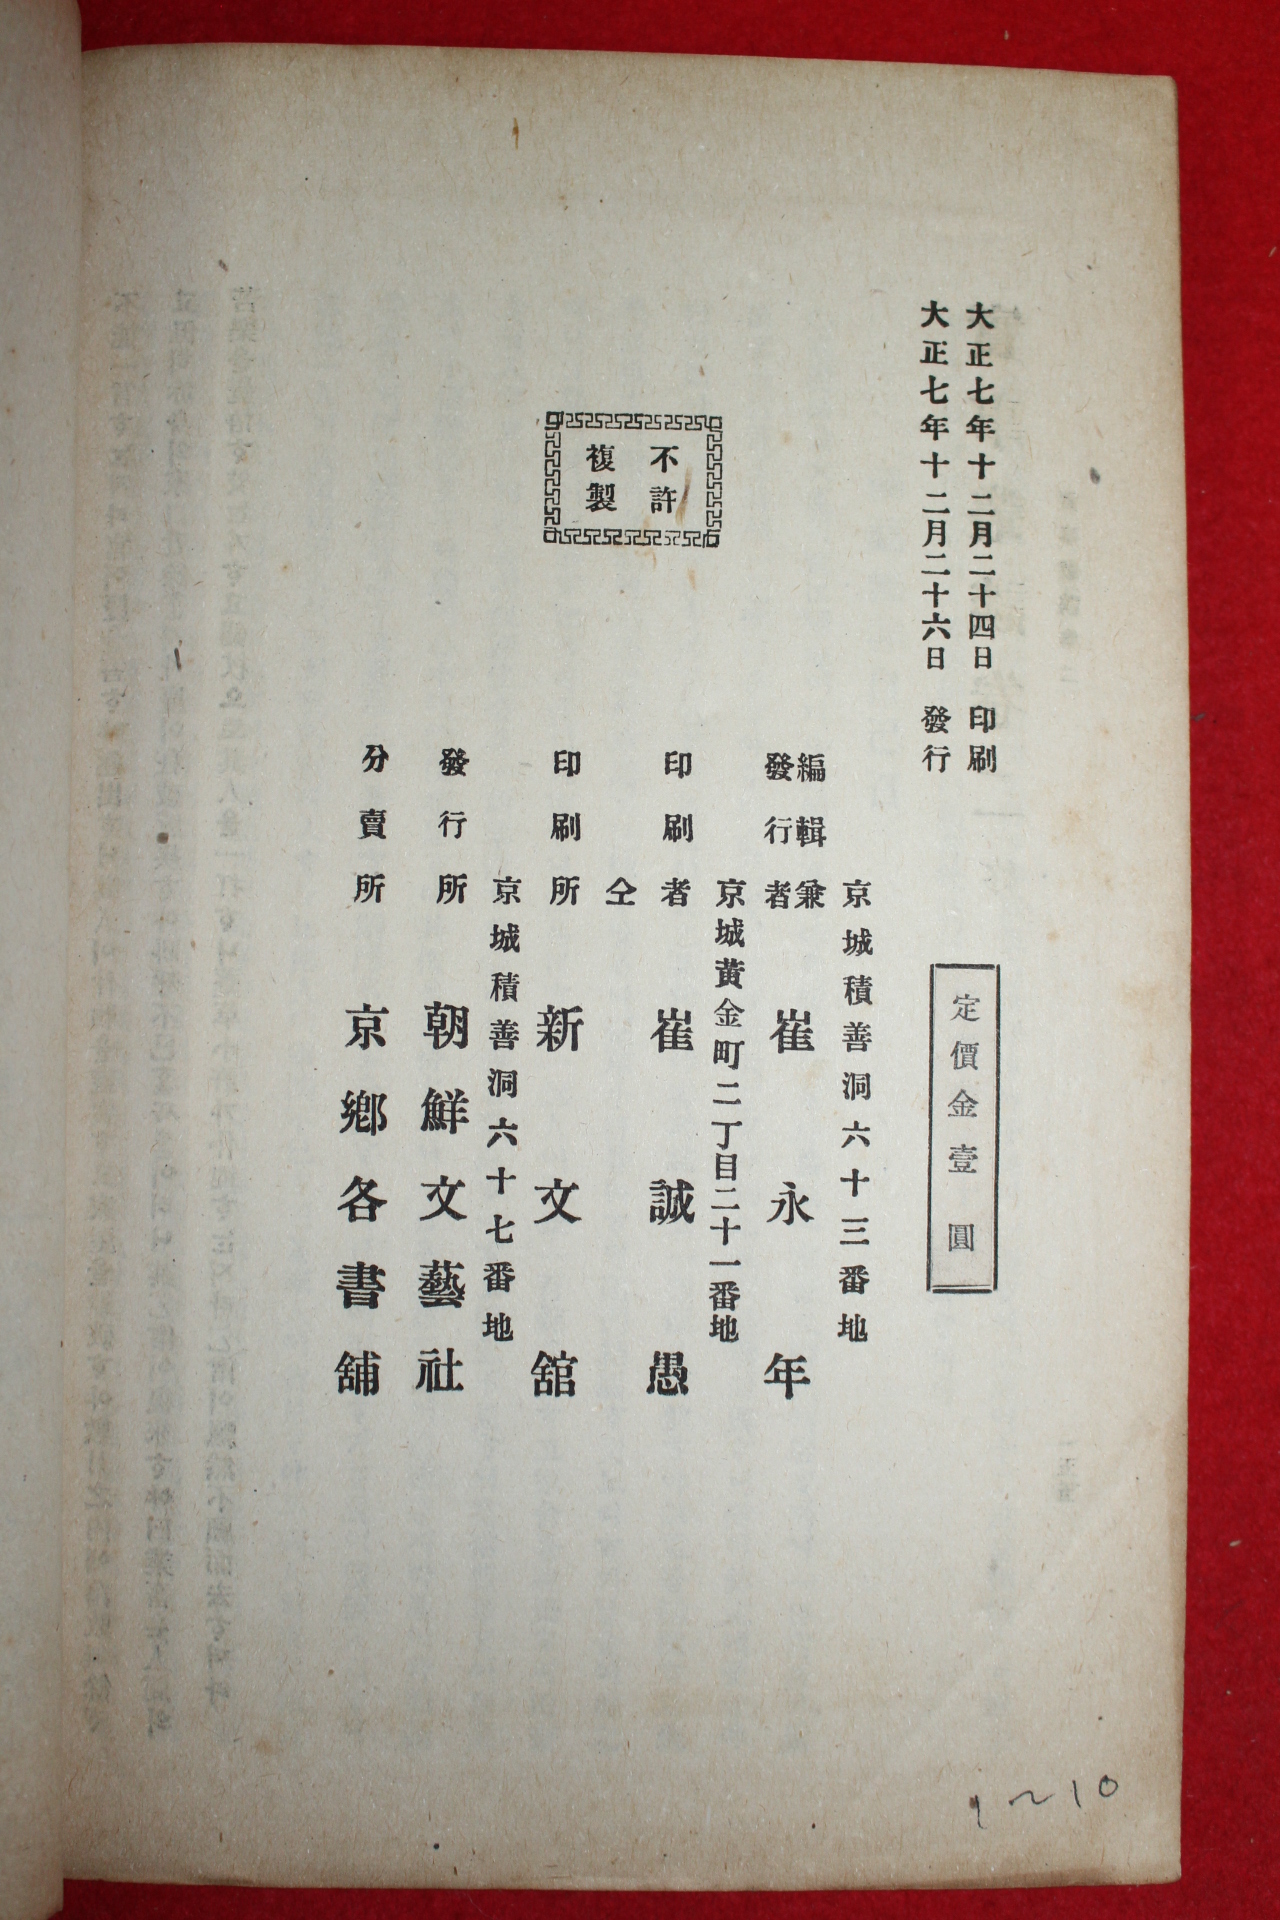 大正七年十二月二十四日 印刷
大正七年十二月二十六日 發行
定價金壹圓
不許
複製
京城積善洞六十三番地
編輯兼
發行者 崔永年
京城黃金町二丁目二十一番地
印刷者 崔誠愚
仝
印刷所 新文舘
京城積善洞六十七番地
發行所 朝鮮文藝社
分賣所 京鄉各書舖
1~10